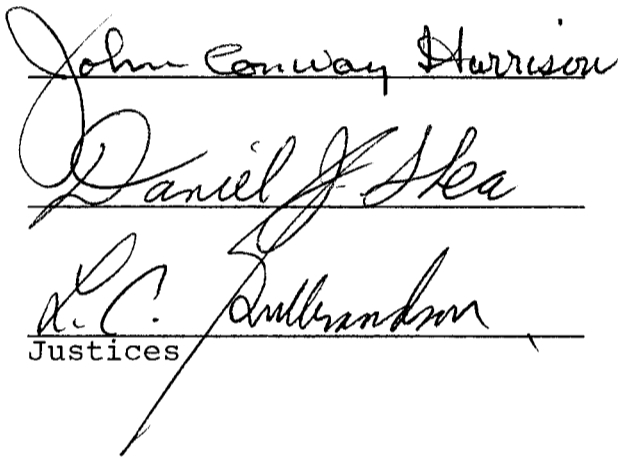 John Conway Harrison
Daniel J. Shea
L. C. Gulbrandson
Justices